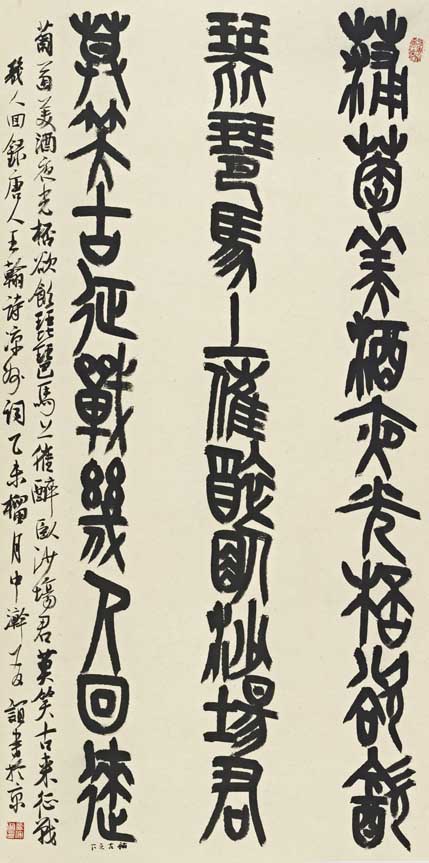 蒲萄美酒夜光桮欲飲
琵琶馬上催醉臥沙場君
莫笑古征戰幾人回徠
葡萄美酒夜光桮欲飲琵琶馬上催醉臥沙場君莫笑古來征戰
幾人回錄唐人王翰詩涼州詞乙未榴月中澣誼書於京